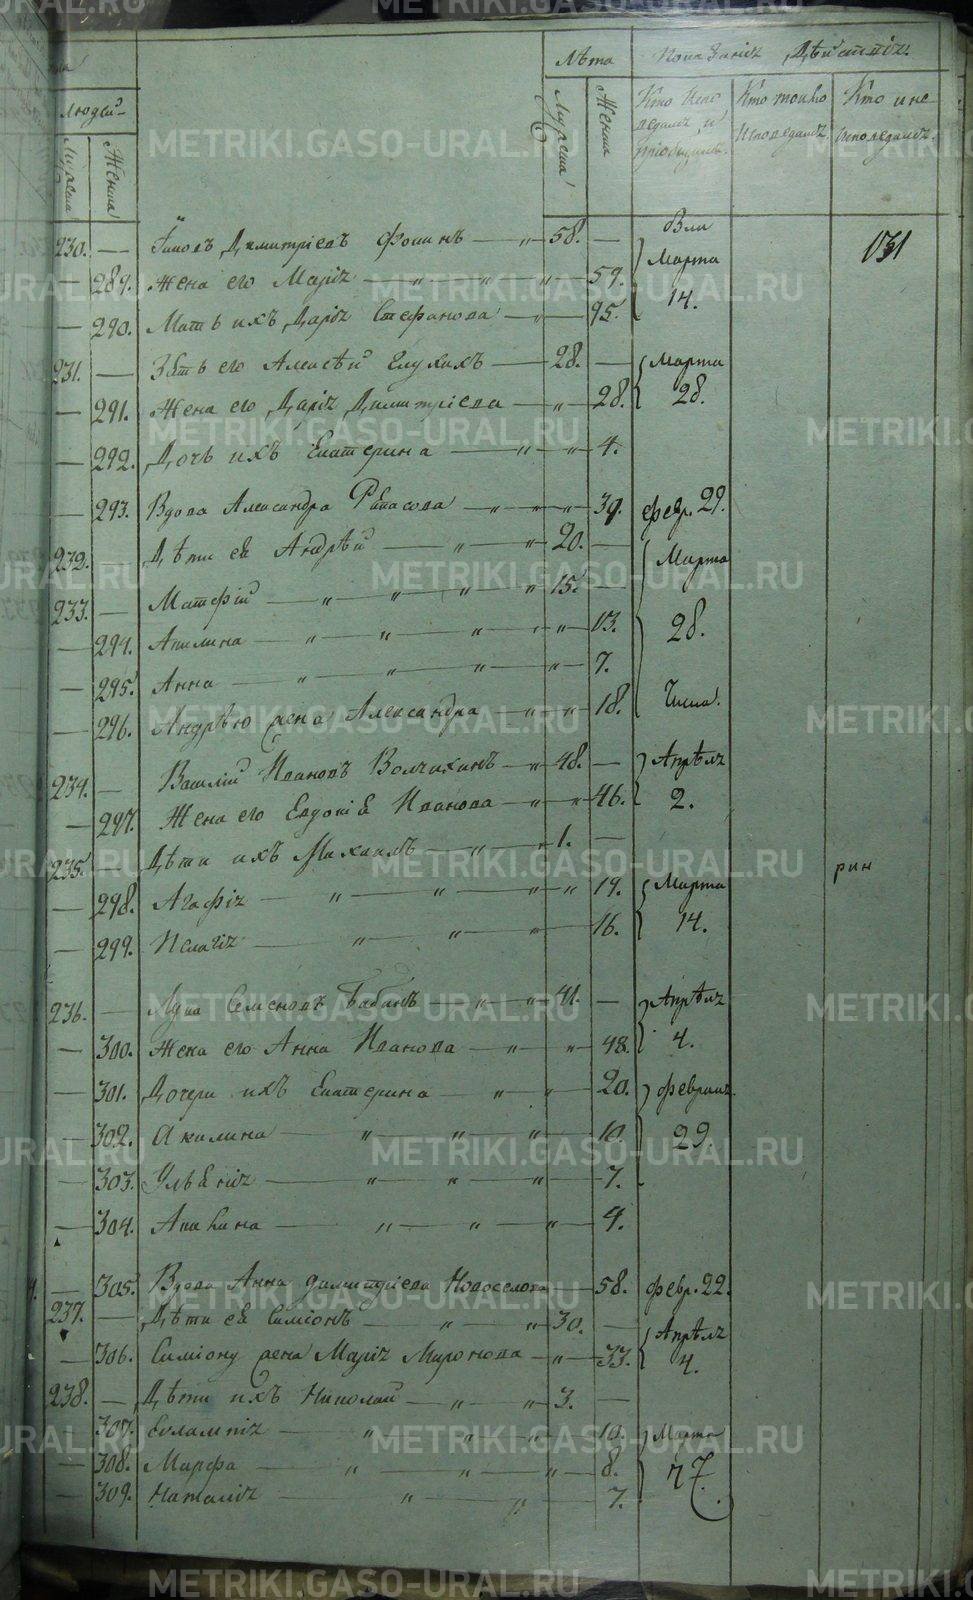 Лѣта
Людей
Мужеска
Женска
Мужеска
Женска
Кто Испо
ведалъ и
Кто токмо
Исповедалъ
Кто и не
исповедалъ
230. — Димитріевъ Фокинъ — 58. —
Вли
131
— 289. Жена его Марія — 59.
Марта
14.
— 290. Мать ихъ Дарія Стефанова — 95.
231. — Зять его Алексѣй Глухихъ — 28. —
Марта
— 291. Жена его Дарія Димитріева — 28.
28.
— 292. Дочь ихъ Екатерина — 4.
— 293. Вдова Александра — 39.
февр. 29.
232. — Дѣти ея Андрѣй — 20. —
Марта
233. — Матфій — 15. —
— 294. Акилина — 13.
28.
— 295. Анна — 7.
— 296. Андрѣю жена Александра — 18.
Числа
234. — Василій Ивановъ Волчихинъ — 48. —
Апрѣля
— 297. Жена его Евдокія Иванова — 46.
2.
235. — Дѣти ихъ Михаилъ — 1. —
рин
— 298. Агафія — 19.
Марта
— 299. Пелагія — 16.
14.
236. — Лука Семеновъ Бабинъ — 41. —
Апрѣля
— 300. Жена его Анна Иванова — 48.
4.
— 301. Дочери ихъ Екатерина — 20.
февраля
— 302. Акилина — 10.
29.
— 303. Ульянія — 7.
— 304. — 4.
— 305. Вдова Анна Димитріева Новоселова — 58.
февр. 22.
237. — Дѣти ея Симіонъ — 30. —
Апрѣля
— 306. Симіону жена Марія Миронова — 33.
4.
238. — Дѣти ихъ Николай — 3. —
— 307. Евлампія — 10.
Марта
— 308. Марфа — 8.
— 309. Наталія — 7.
METRIKI.GASO-URAL.RU